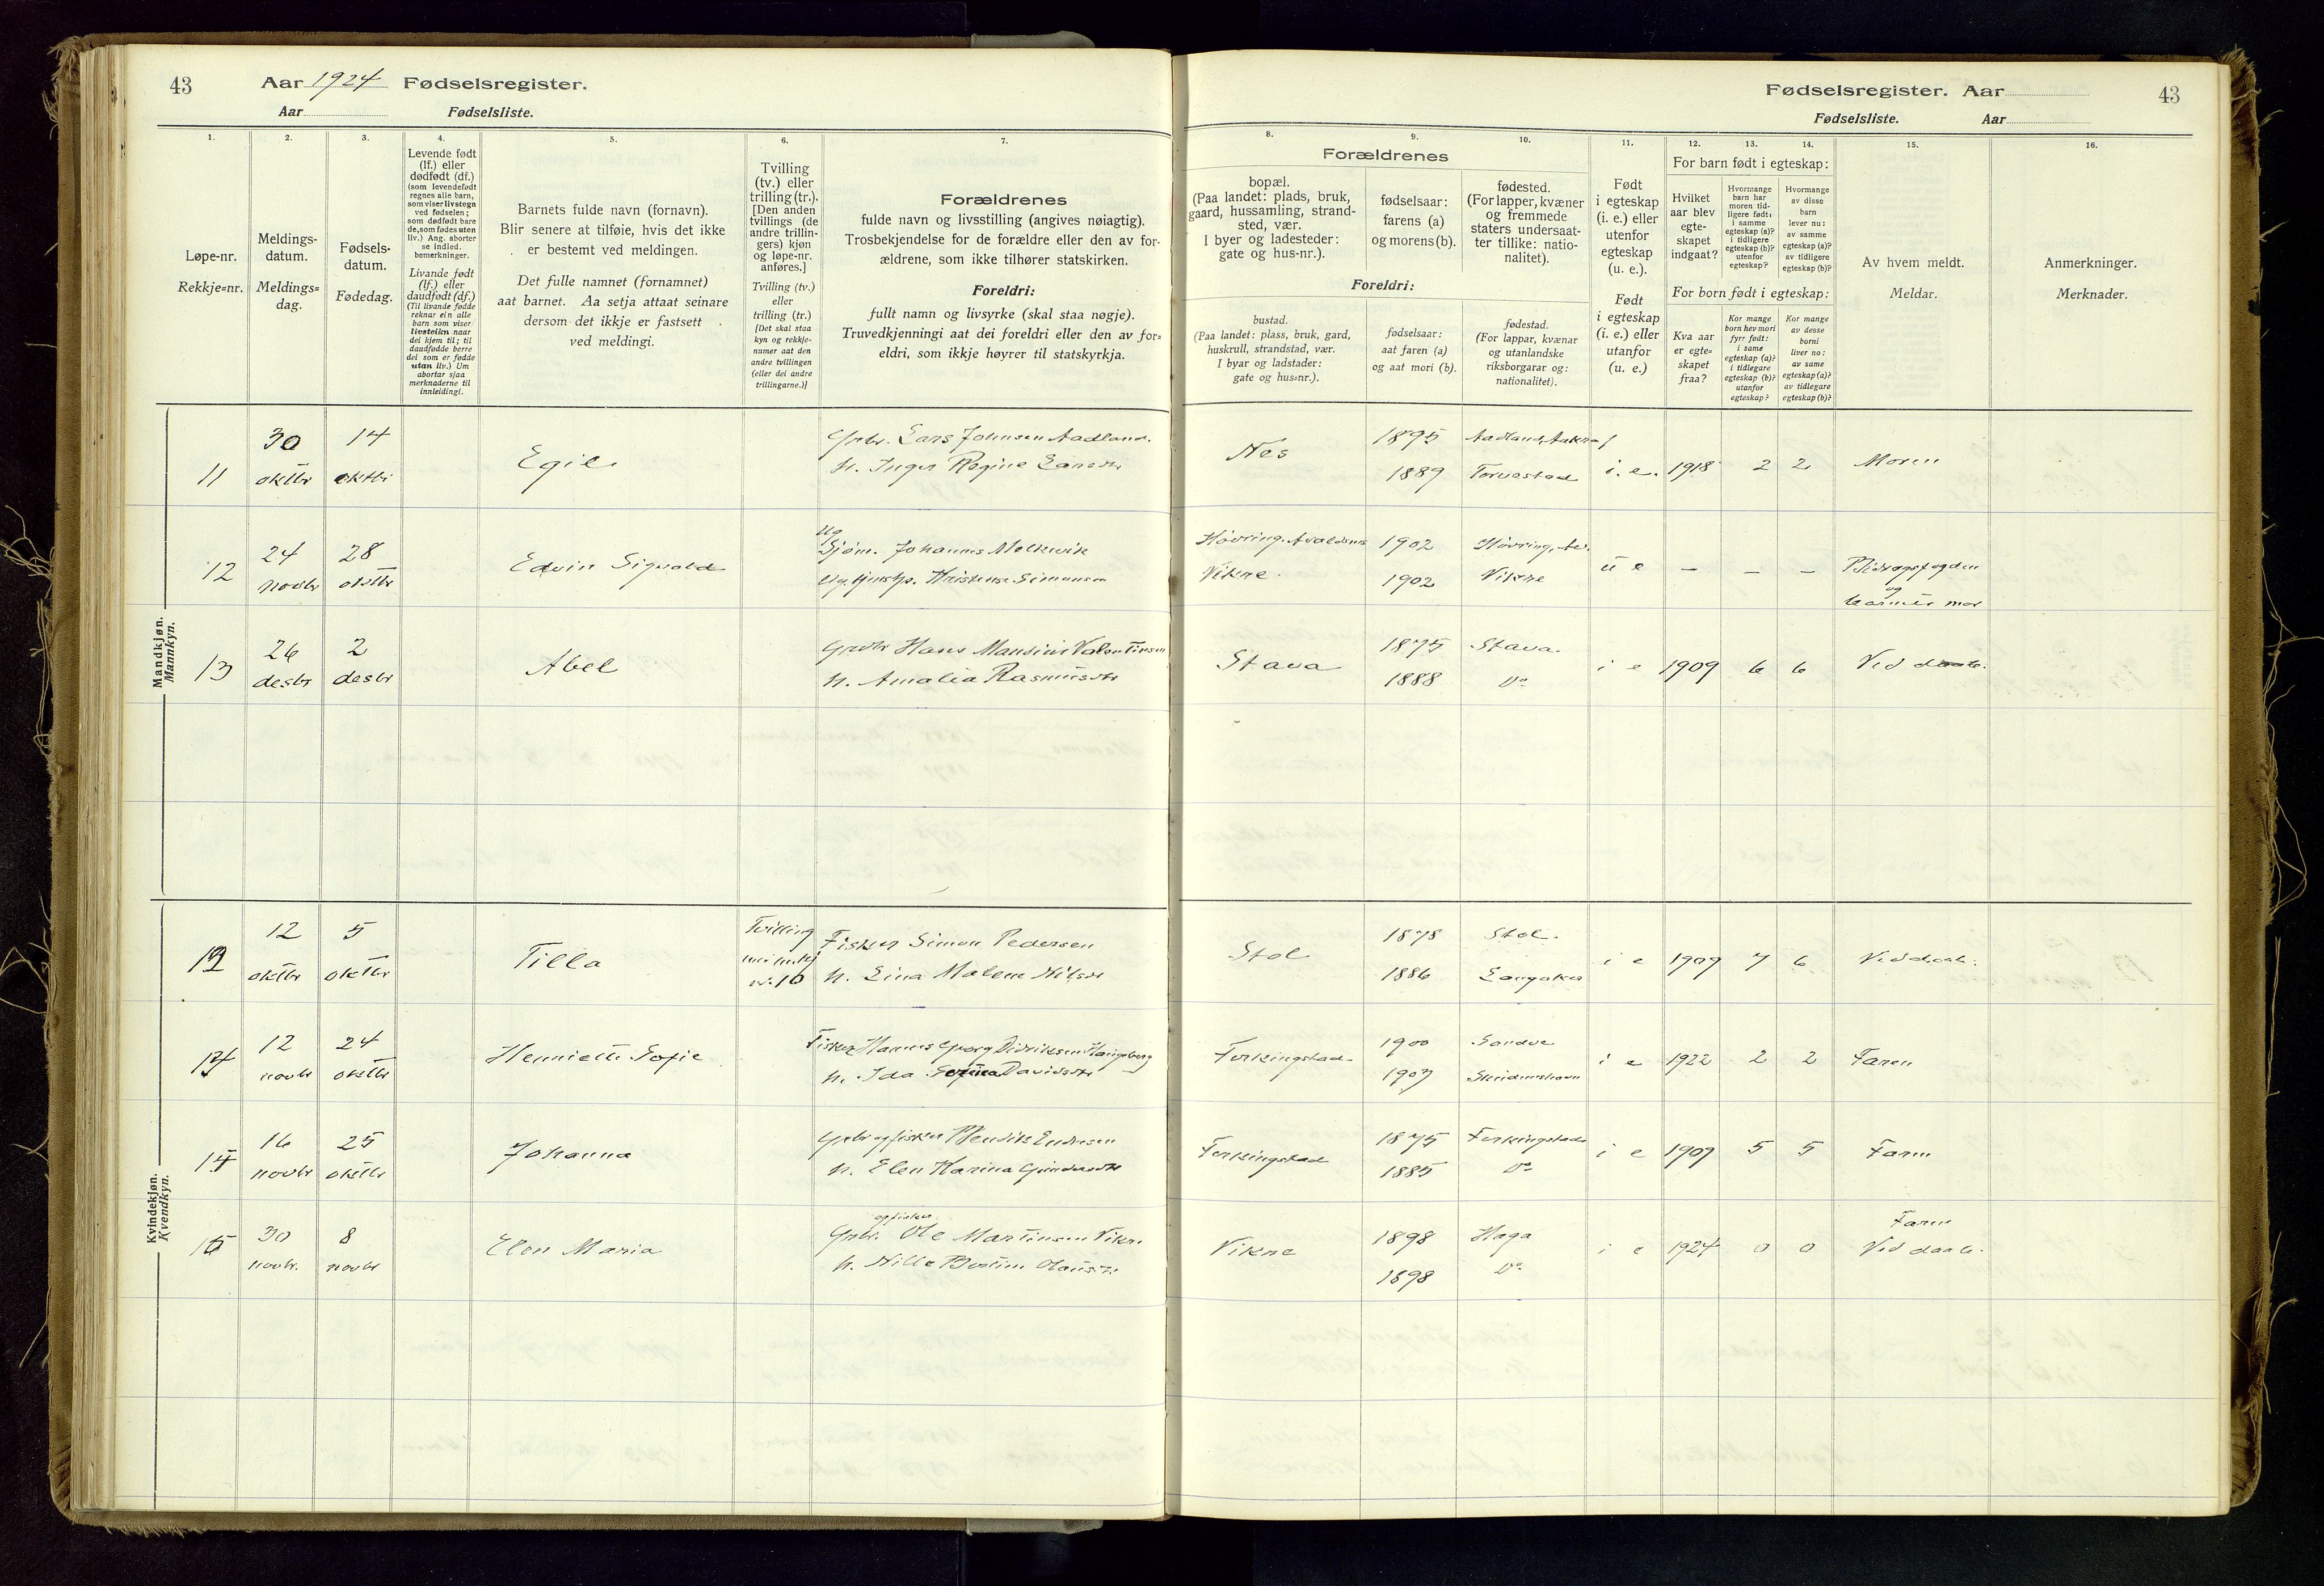 43
Aar 1924 Fødselsregister.
Aar Fødselsliste.
1.
2.
3.
4.
5.
6.
7.
Løpe-nr.
Rekkje=nr.
Meldings-
datum.
Meldings=
dag.
Fødsels-
datum.
Fødedag.
Levende født
(lf.) eller
dødfødt (df.)
(som levendefødt
regnes alle barn,
som viser livstegn
ved fødselen;
som dødfødt bare
de, som fødes uten
liv.) Ang. aborter
se indled.
bemerkninger.
Livande født
(lf.) eller
daudfødt (df.)
(Til livande fødde
reknar ein alle
barn som viser
livsteikn naar
dei kjem til; til
daudfødde berre
dei som er fødde
utan liv.) Um
abortar sjaa
merknaderne til
innleidingi.
Barnets fulde navn (fornavn).
Blir senere at tilføie, hvis det ikke
er bestemt ved meldingen.
Det fulle namnet (fornamnet)
aat barnet. Aa setja attaat seinare
dersom det ikkje er fastsett
ved meldingi.
Tvilling
(tv.) eller
trilling (tr.).
[Den anden
tvillings (de
andre trillin-
gers) kjøn
og løpe-nr.
anføres.]
Tvilling (tv.)
eller
trilling (tr.)
[Det skal staa
kyn og rekkje-
numer aat den
andre tvillingen
(eller dei andre
trillingarne.)]
Forældrenes
fulde navn og livsstilling (angives nøiagtig).
Trosbekjendelse for de forældre eller den av for-
ældrene, som ikke tilhører statskirken.
Foreldri:
fullt namn og livsyrke (skal staa nøgje).
Truvedkjenningi aat dei foreldri eller den av for=
eldri, som ikkje høyrer til statskyrkja.
Mandkjøn.
Mannkyn.
11
30
oktbr
14
oktbr
Egil
Grbr. Lars Johnsen Aadland.
h. Inger Regine Larsdtr
12
24
novbr
28
oktbr
Edvin Sigvald
Ug
Sjøm. Johannes Melkevik
13
26
desbr
2
desbr
Abel
Grdbr Hans Mandius Valentinsen
h. Amalia Rasmusdtr
Kvindekjøn.
Kvendkyn.
12
oktbr
5
oktbr
Tilla
Tvilling
10
Fisker Simon Pedersen
h. Lina Malene Nilsdr
12
novbr
24
oktbr
Henriette Sofie
Fisker Hannes Georg Didriksen Haugeberg
h. Ida Davidsdtr
16
novbr
25
oktbr
Johanna
Grbr og fisker Bendik Endresen
h. Elen Karina
30
novbr.
8
novbr
Elen Maria
og fisker
Grbr. Ole Martinsen Vikre
h. Nille
Fødselsregister. Aar
43
Fødselsliste. Aar
8.
9.
10.
11.
12.
13.
14.
15.
16.
Forældrenes
bopæl.
(Paa landet: plads, bruk,
gaard, hussamling, strand-
sted, vær.
I byer og ladesteder:
gate og hus-nr.).
fødselsaar:
farens (a)
og morens (b).
fødested.
(For lapper, kvæner
og fremmede
staters undersaat-
ter tillike: natio-
nalitet).
Foreldri:
bustad.
(Paa landet: plass, bruk, gard,
huskrull, strandstad, vær.
I byar og ladstader:
gate og hus=nr.).
fødselsaar:
aat faren (a)
og aat mori (b).
fødestad.
(For lappar, kvænar
og utanlandske
riksborgarar og:
nationalitet).
Født
i egteskap
(i. e.) eller
utenfor
egteskap
(u. e.).
Født
i egteskap
(i. e.) eller
utanfor
(u. e.)
For barn født i egteskap:
Hvilket
aar blev
egte-
skapet
indgaat?
Hvormange
barn har
moren tid-
ligere født:
i samme
egteskap (a)?
i tidligere
egteskap (b)?
utenfor
egteskap?
Hvormange
av disse
barn
lever nu:
av samme
egteskap (a)?
av tidligere
egteskap (b)?
For born født i egteskap:
Kva aar
er egte=
skapet
fraa?
Kor mange
born hev mori
fyrr født:
i same
egteskap (a)?
i tidlegare
egteskap (b)?
utanfor
egteskap?
Kor mange
av desse
borni
liver no:
av same
egteskap (a)?
av tidlegare
egteskap (b)?
Av hvem meldt.
Meldar.
Anmerkninger.
Merknader.
Nes
1895
1889
Aadland, Aakra
Torvestad
i. e.
1918
2
2
Moren
Høvring. Avaldsnes
Vikre.
1902
1902
Høvring, Av.
Vikre
u e
–
–
–
Bidragsfogden
og
barnets mor
Stava
1875
1888
Stava.
Do
i e
1909
6
6
Ved daab.
Stol
1878
1886
Stol.
Langaker
i e
1909
7
6
Ved daab.
Ferkingstad
1900
1907
Sandve
i e
1922
2
2
Faren
Ferkingstad
1875
1885
Ferkingstad
Do
i e
1909
5
5
Faren
Vikre
1898
1898
Haga
Do
i e
1924
0
0
Faren
Ved daab.